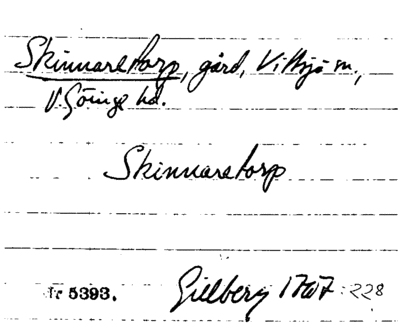 Skinnaretorp, gård, Vittsjö sn,
V. Göinge hd.
Skinnaretorp
Tr 5393. Gillberg 1767: 228